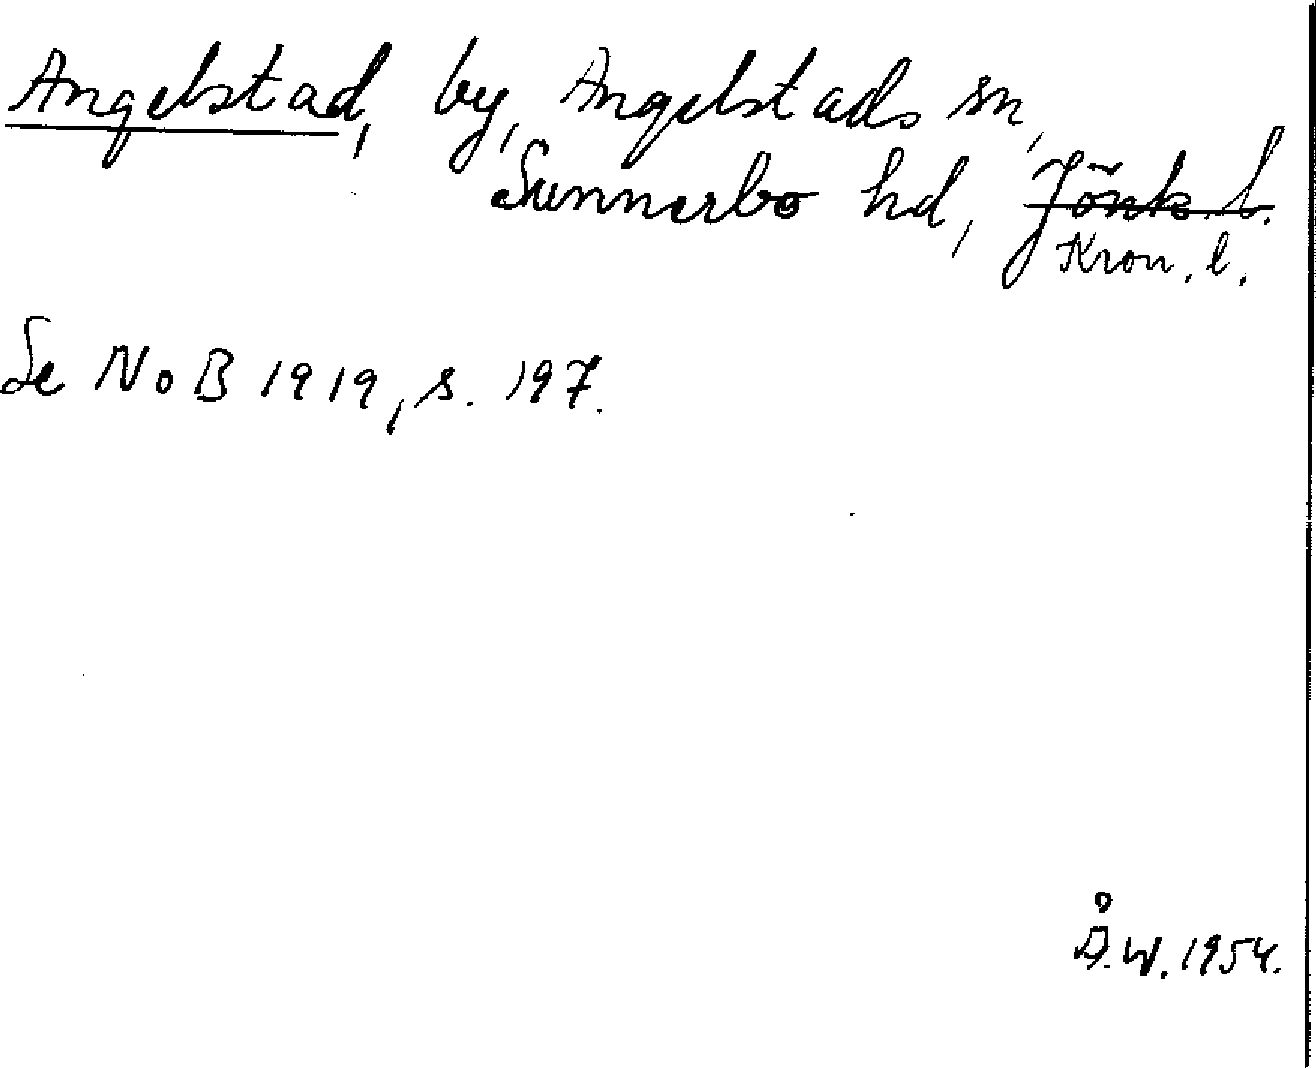 Angelstad, by, Angelstads sn,
Sunnerbo hd, Jönk. l.
Kron. l.
Se NoB 1919, s. 197.
Å.W. 1954.